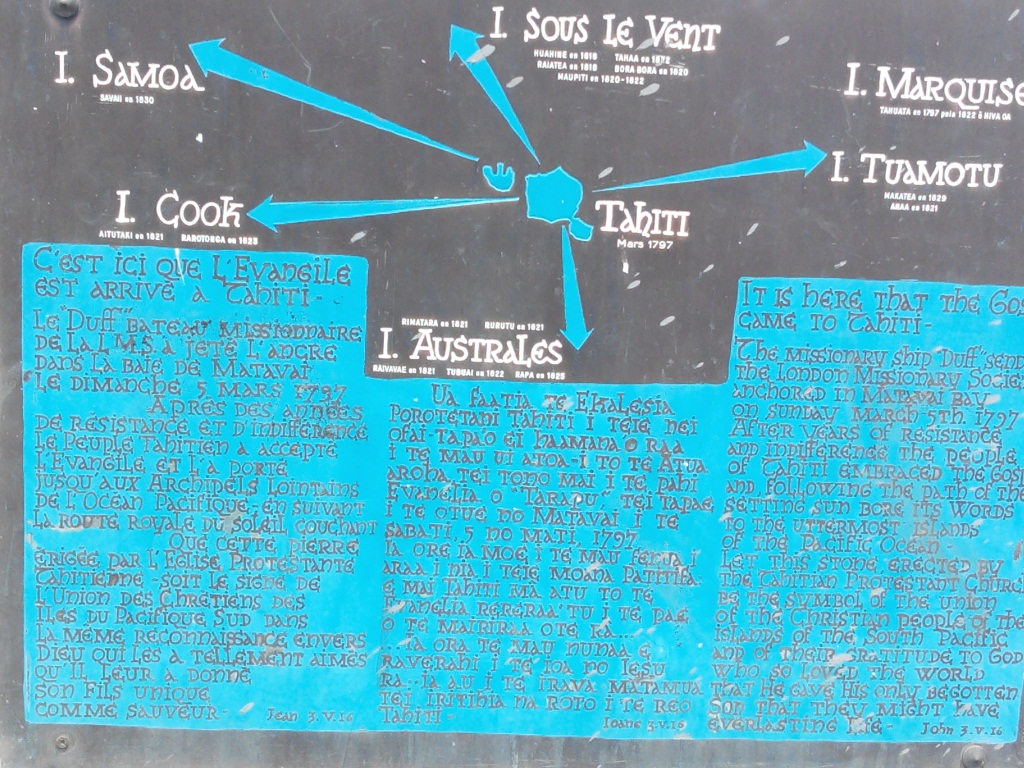 I. SOUS LE VENT
HUAHINE en 1818 TAHAA en 1822
RAIATEA en 1818 BORA BORA en 1820
MAUPITI en 1820-1822
I. SAMOA
SAVAII en 1830
I. MARQUISE
TAHUATA en 1797 puis 1822 & HIVA OA
I. TUAMOTU
MAKATEA en 1829
ANAA en 1821
I. COOK
AITUTAKI en 1821 RAROTONGA en 1823
TAHITI
Mars 1797
RIMATARA en 1821 RURUTU en 1821
I. AUSTRALES
RAIVAVAE en 1821 TUBUAI en 1822 RAPA en 1825
C'EST ICI QUE L'EVANGILE
EST ARRIVÉ A TAHITI-
LE "DUFF" BATEAU MISSIONNAIRE
DE LA L.M.S. A JETÉ L'ANCRE
DANS LA BAIE DE MATAVAI
LE DIMANCHE 5 MARS 1797
APRÈS DES ANNÉES
DE RÉSISTANCE ET D'INDIFFÉRENCE
LE PEUPLE TAHITIEN A ACCEPTÉ
L'EVANGILE ET L'A PORTÉ
JUSQU'AUX ARCHIPELS LOINTAINS
DE L'OCÉAN PACIFIQUE, EN SUIVANT
LA ROUTE ROYALE DU SOLEIL COUCHANT
QUE CETTE PIERRE
ÉRIGÉE PAR L'EGLISE PROTESTANTE
TAHITIENNE - SOIT LE SIGNE DE
L'UNION DES CHRÉTIENS DES
ÎLES DU PACIFIQUE SUD DANS
LA MÊME RECONNAISSANCE ENVERS
DIEU QUI LES A TELLEMENT AIMÉS
QU'IL LEUR A DONNÉ
SON FILS UNIQUE
COMME SAUVEUR-
Jean 3.V.16
UA FAATIA TE EKALESIA
POROTETANI TAHITI I TEIE NEI
OFAI-TAPAO EI HAAMANAO RAA
I TE MAU UI ATOA-I TO TE ATUA
AROHA TEI TONO MAI I TE PAHI
EVANELIA O "TARAPU", TEI TAPAE
I TE OTUE NO MATAVAI I TE
SABATI, 5 NO MATI, 1797
IA ORE IA MOE I TE MAU FENUA I
ARAA I NIA I TEIE MOANA PATITIFA
E MAI TAHITI MA ATU TO TE
VANELIA RERERAA TU I TE PAE
O TE MAIRIRAA O TE RA...
...IA ORA TE MAU NUNAA E
RAVERAHI I TE IOA NO IESU
RA...IA AU I TE IRAVA MATAMUA
TEI IRITIHIA NA ROTO I TE REO
TAHITI-
Ioane 3.V.16
IT IS HERE THAT THE GOS
CAME TO TAHITI-
THE MISSIONARY SHIP "DUFF" SENT
THE LONDON MISSIONARY SOCIET
ANCHORED IN MATAVAI BAY
ON SUNDAY MARCH 5TH. 1797
AFTER YEARS OF RESISTANCE
AND INDIFFERENCE THE PEOPLE
OF TAHITI EMBRACED THE GOSP
AND, FOLLOWING THE PATH OF THE
SETTING SUN BORE HIS WORDS
TO THE UTTERMOST ISLANDS
OF THE PACIFIC OCEAN
LET THIS STONE, ERECTED BY
THE TAHITIAN PROTESTANT CHURC
BE THE SYMBOL OF THE UNION
OF THE CHRISTIAN PEOPLE OF THE
ISLANDS OF THE SOUTH PACIFIC
AND OF THEIR GRATITUDE TO GOD
WHO SO LOVED THE WORLD
THAT HE GAVE HIS ONLY BEGOTTEN
SON THAT THEY MIGHT HAVE
EVERLASTING LIFE-
John 3.V.16